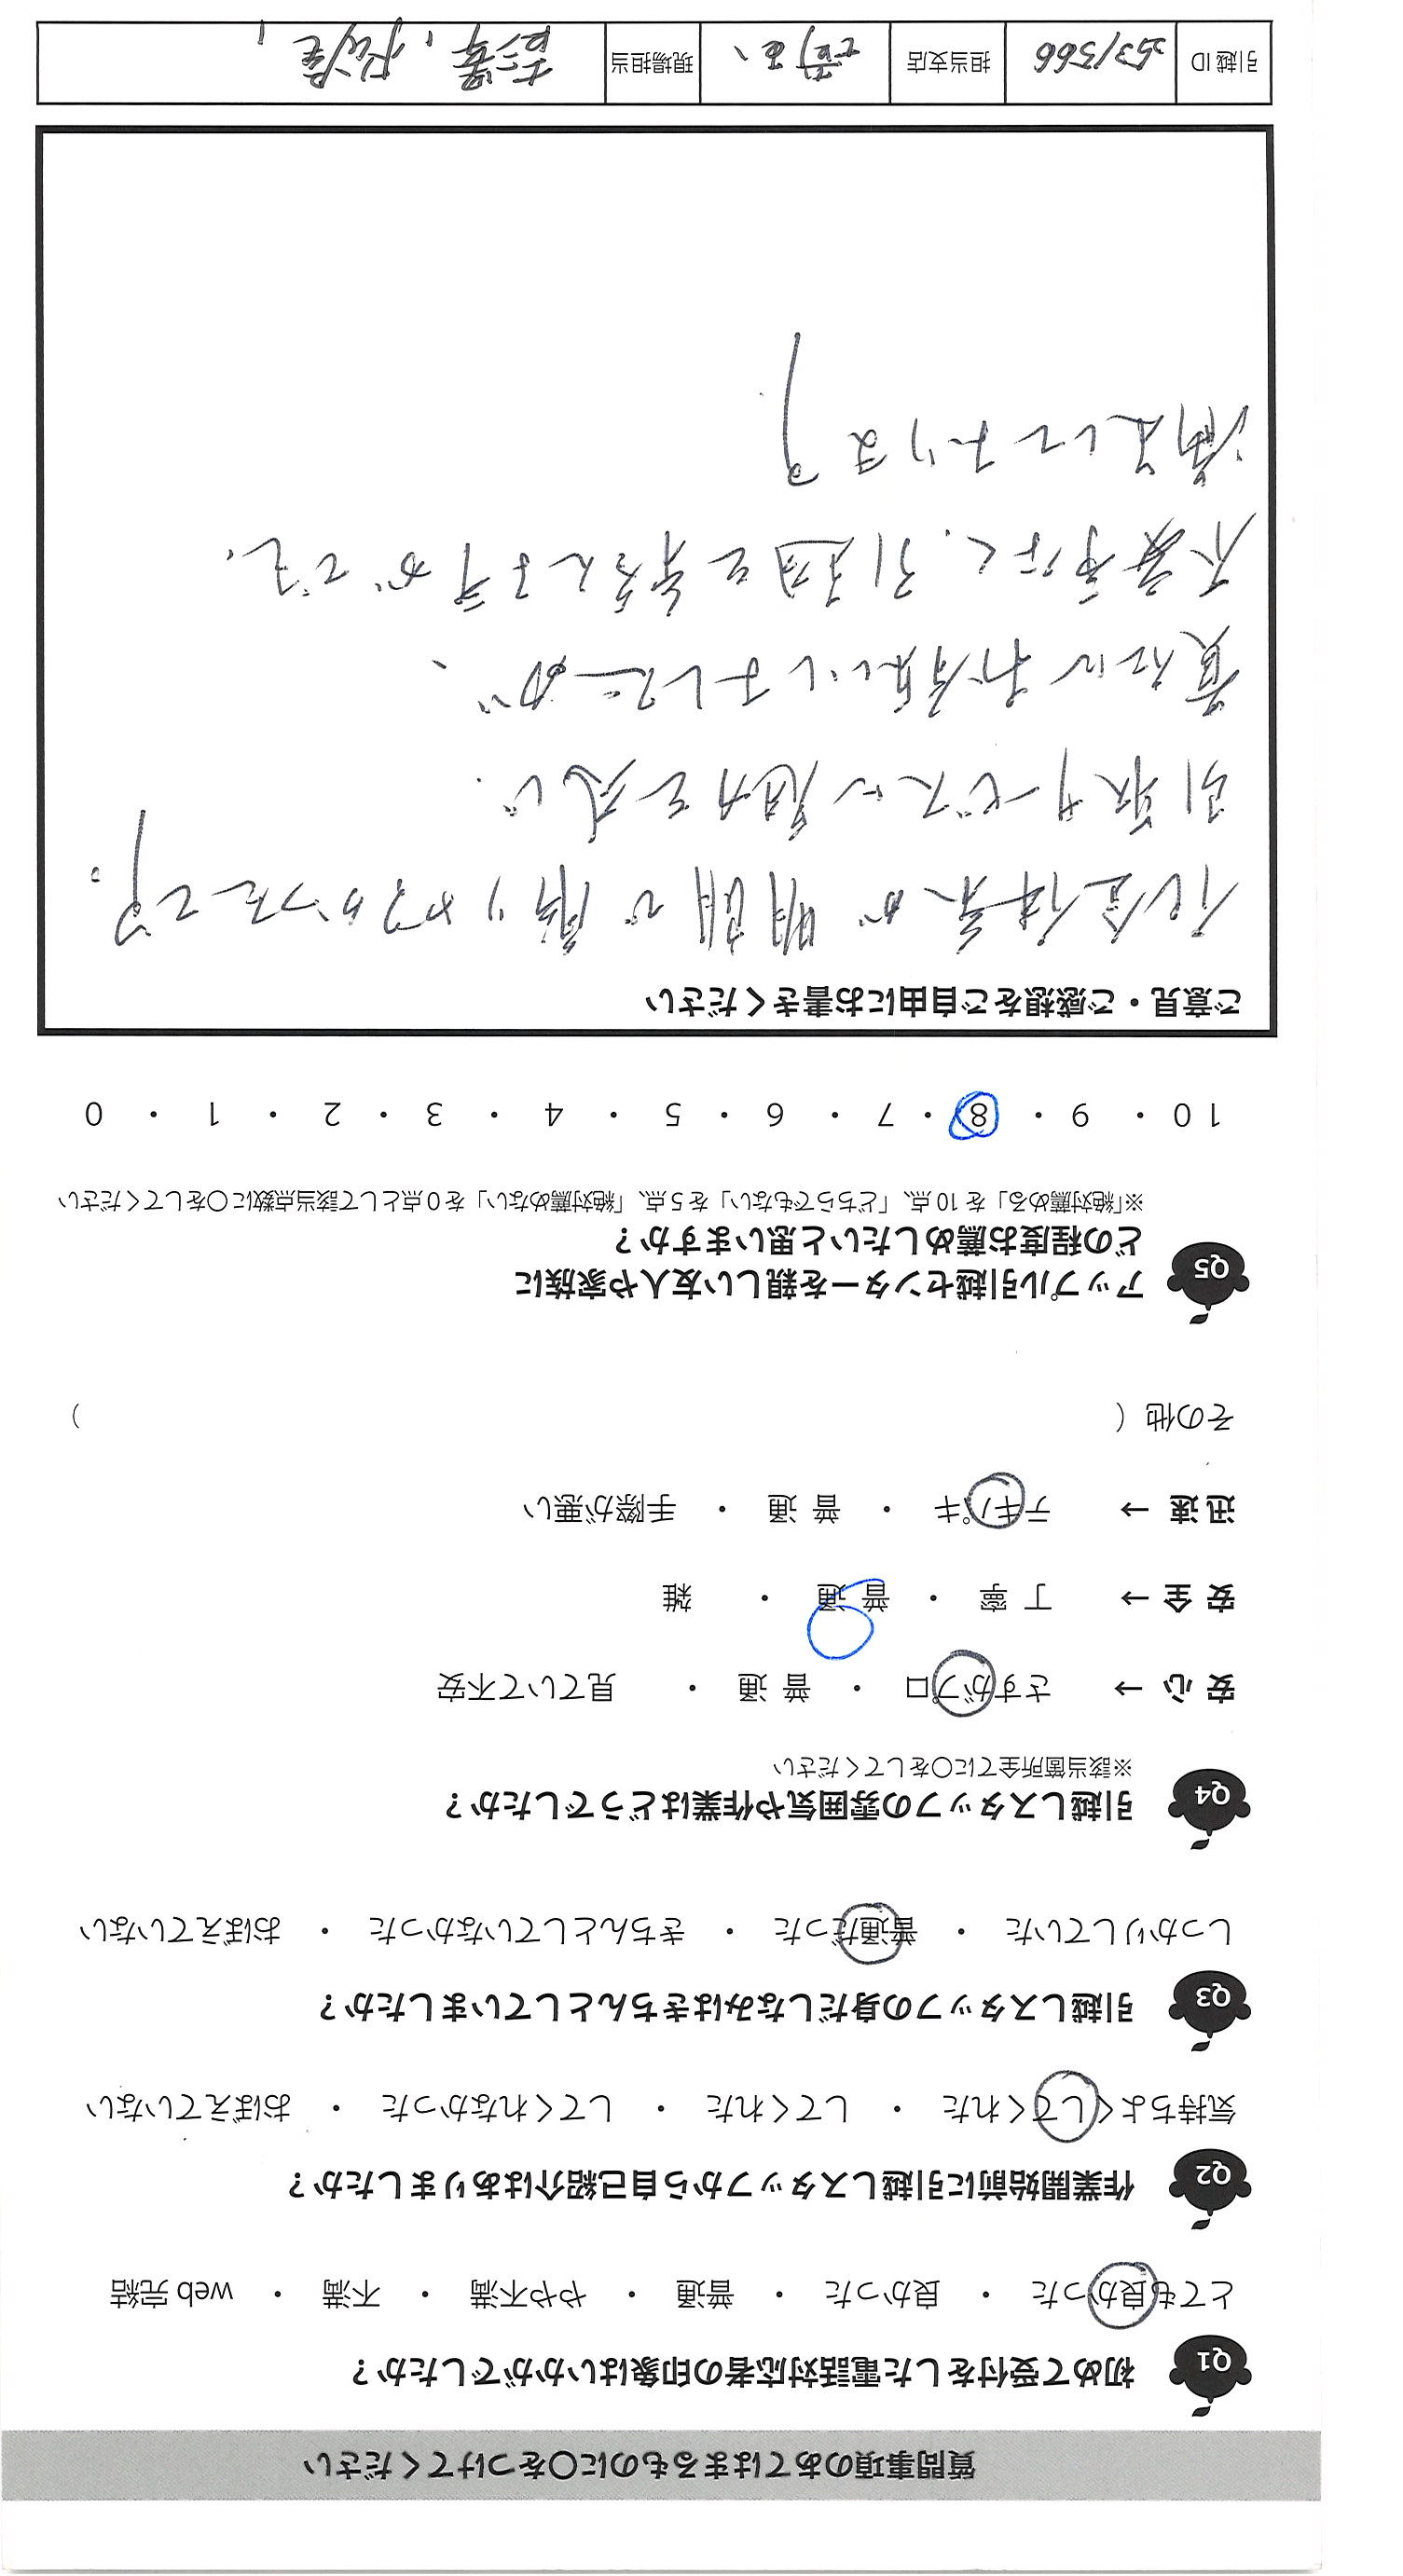 質問事項のあてはまるものに〇をつけてください
Q1 初めて受付をした電話対応者の印象はいかがでしたか？
とても良かった ・ 良かった ・ 普通 ・ やや不満 ・ 不満 ・ web 完結
Q2 作業開始前に引越しスタッフから自己紹介はありましたか？
気持ちよくしてくれた ・ してくれた ・ してくれなかった ・ おぼえていない
Q3 引越しスタッフの身だしなみはきちんとしていましたか？
しっかりしていた ・ 普通だった ・ きちんとしていなかった ・ おぼえていない
Q4 引越しスタッフの雰囲気や作業はどうでしたか？
※該当箇所全てに〇をしてください
安 心 → さすがプロ ・ 普 通 ・ 見ていて不安
安 全 → 丁 寧 ・ 普 通 ・ 雑
迅 速 → テキパキ ・ 普 通 ・ 手際が悪い
その他（ ）
Q5 アップル引越センターを親しい友人や家族に
どの程度お薦めしたいと思いますか？
※「絶対薦める」を 10 点、「どちらでもない」を 5 点、「絶対薦めない」を 0 点として該当点数に〇をしてください
10 ・ 9 ・ 8 ・ 7 ・ 6 ・ 5 ・ 4 ・ 3 ・ 2 ・ 1 ・ 0
ご意見・ご感想をご自由にお書きください
代金体系が明朗で解りやすかったです。
引取サービスに魅力を感じ、
貴社にお願いしましたが、
不要予なく、引越を考えますがでも、
満足しております
引越 ID 253/566 担当支店 現場担当